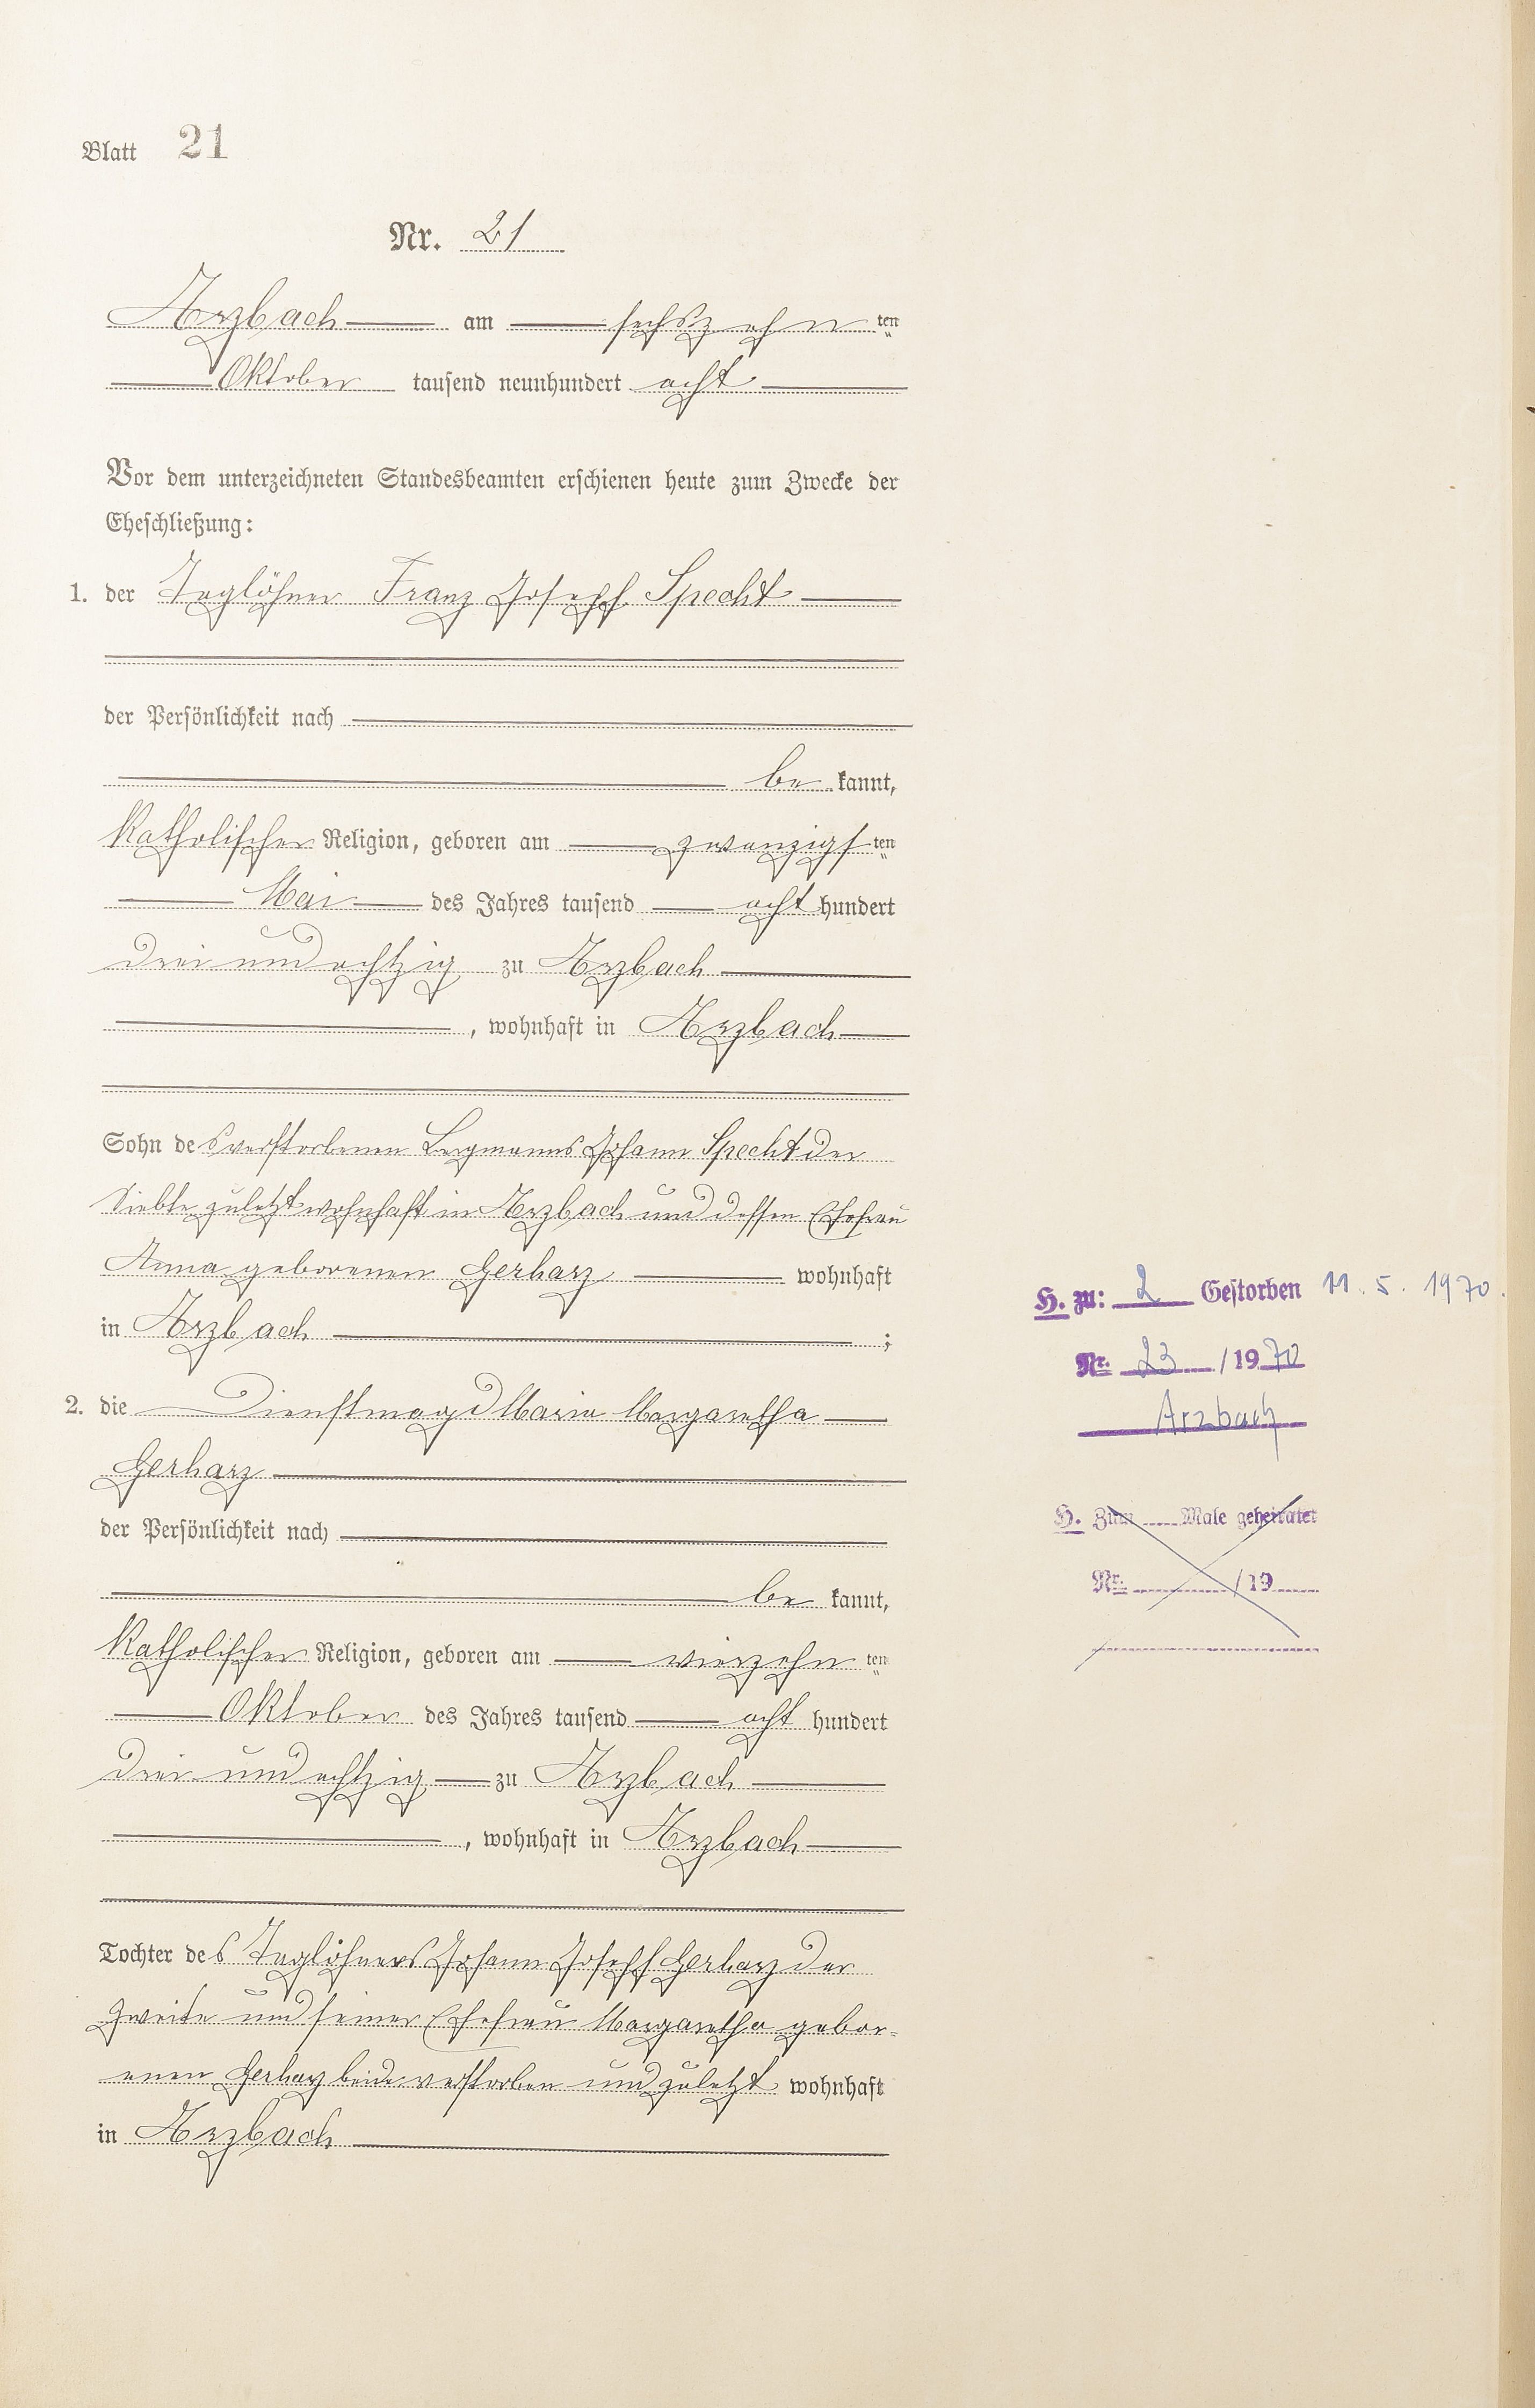 Blatt 21
Nr. 21
Arzbach am sechszehn ten
Oktober tausend neunhundert acht
Vor dem unterzeichneten Standesbeamten erschienen heute zum Zwecke der
Eheschließung:
1. der Taglöhner Franz Joseph Specht
der Persönlichkeit nach
be kannt,
Katholischer Religion, geboren am zwanzigs ten
Mai des Jahres tausend acht hundert
drei und achtzig zu Arzbach
, wohnhaft in Arzbach
Sohn des verstorbenen Bergmanns Johann Specht der
Siebte zuletzt wohnhaft in Arzbach und dessen Ehefrau
Anna geborenen Gerharz wohnhaft
in Arzbach ;
2. die Dienstmagd Maria Margaretha
Gerharz
der Persönlichkeit nach
be kannt,
Katholischer Religion, geboren am vierzehn ten
Oktober des Jahres tausend acht hundert
drei und achtzig zu Arzbach
, wohnhaft in Arzbach
Tochter des Taglöhners Johann Joseph Gerharz der
Zweite und seiner Ehefrau Margaretha gebor-
enen Gerharz beide verstorben und zuletzt wohnhaft
in Arzbach
H. zu: 2 Gestorben 11. 5. 1970.
Nr. 23 /1970
Arzbach
H. Zum Male geheiratet
Nr. /19